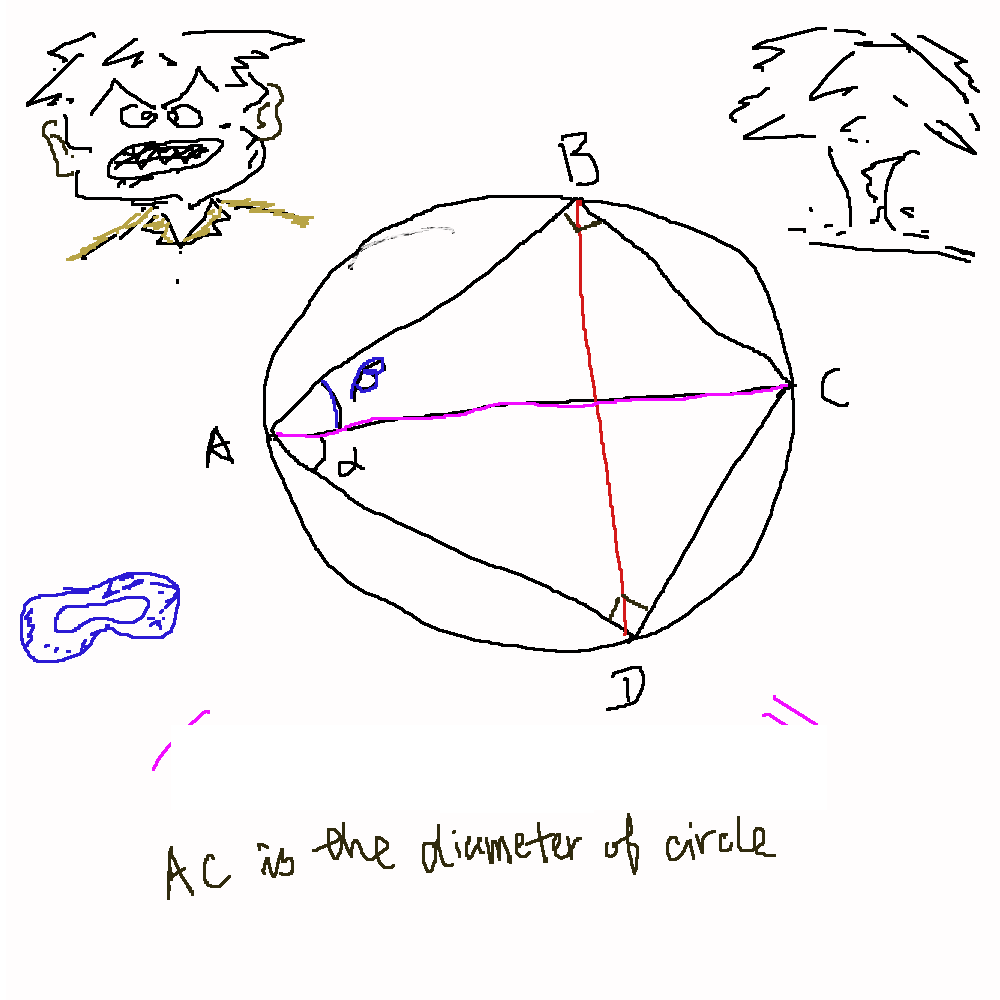 B
β
C
A
α
D
AC is the diameter of circle